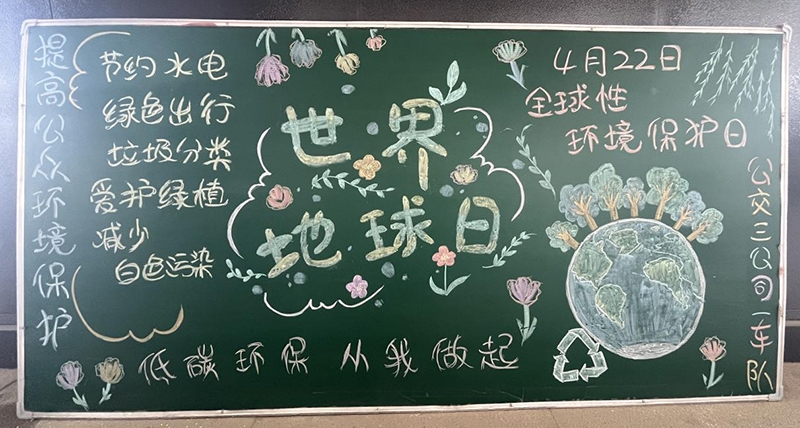 提高公众环境保护
节约水电
绿色出行
垃圾分类
爱护绿植
减少
白色污染
世界
地球日
4月22日
全球性
环境保护日
公交三公司一车队
低碳环保 从我做起